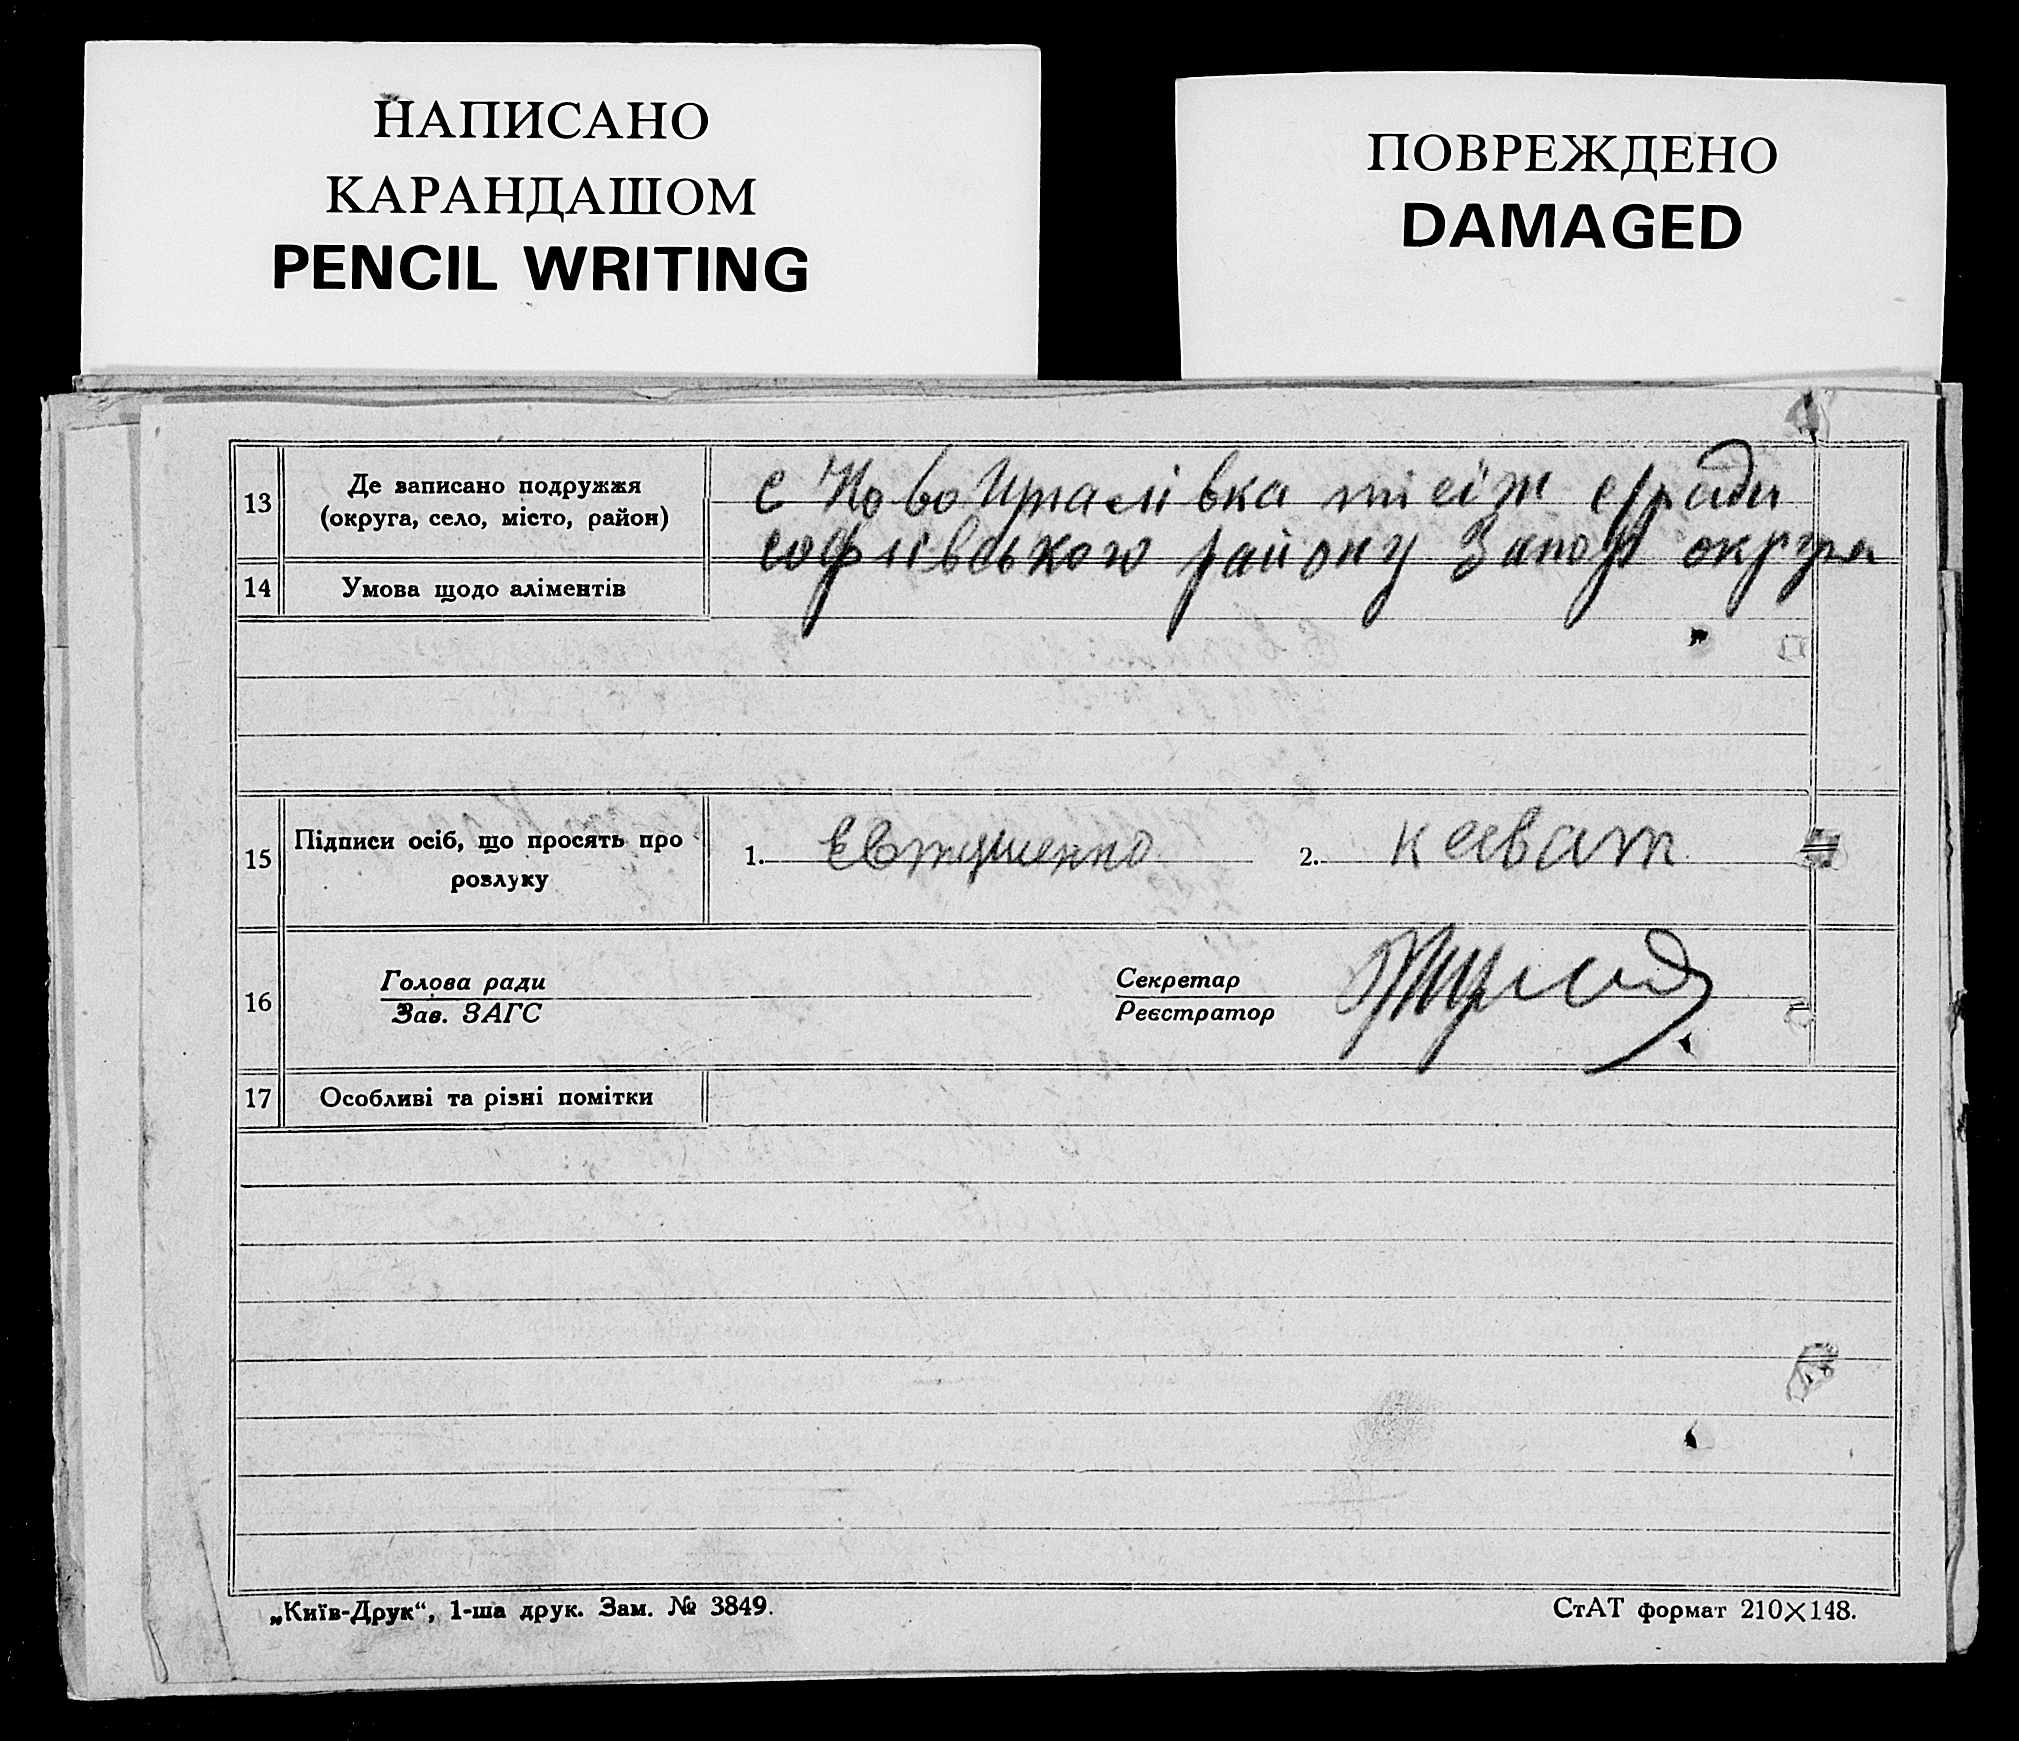 НАПИСАНО
КАРАНДАШОМ
PENCIL WRITING
ПОВРЕЖДЕНО
DAMAGED
13
Де записано подружжя
(округа, село, місто, район)
с Ново тієїж с/ради
софіівського району Запор округи
14
Умова щодо аліментів
15
Підписи осіб, що просять про
розлуку
1. Євтушенко 2.
16
Голова ради
Зав. ЗАГС
Секретар
Реєстратор
17
Особливі та різні помітки
„Київ-Друк“, 1-ша друк. Зам. № 3849.
СтАТ формат 210×148.